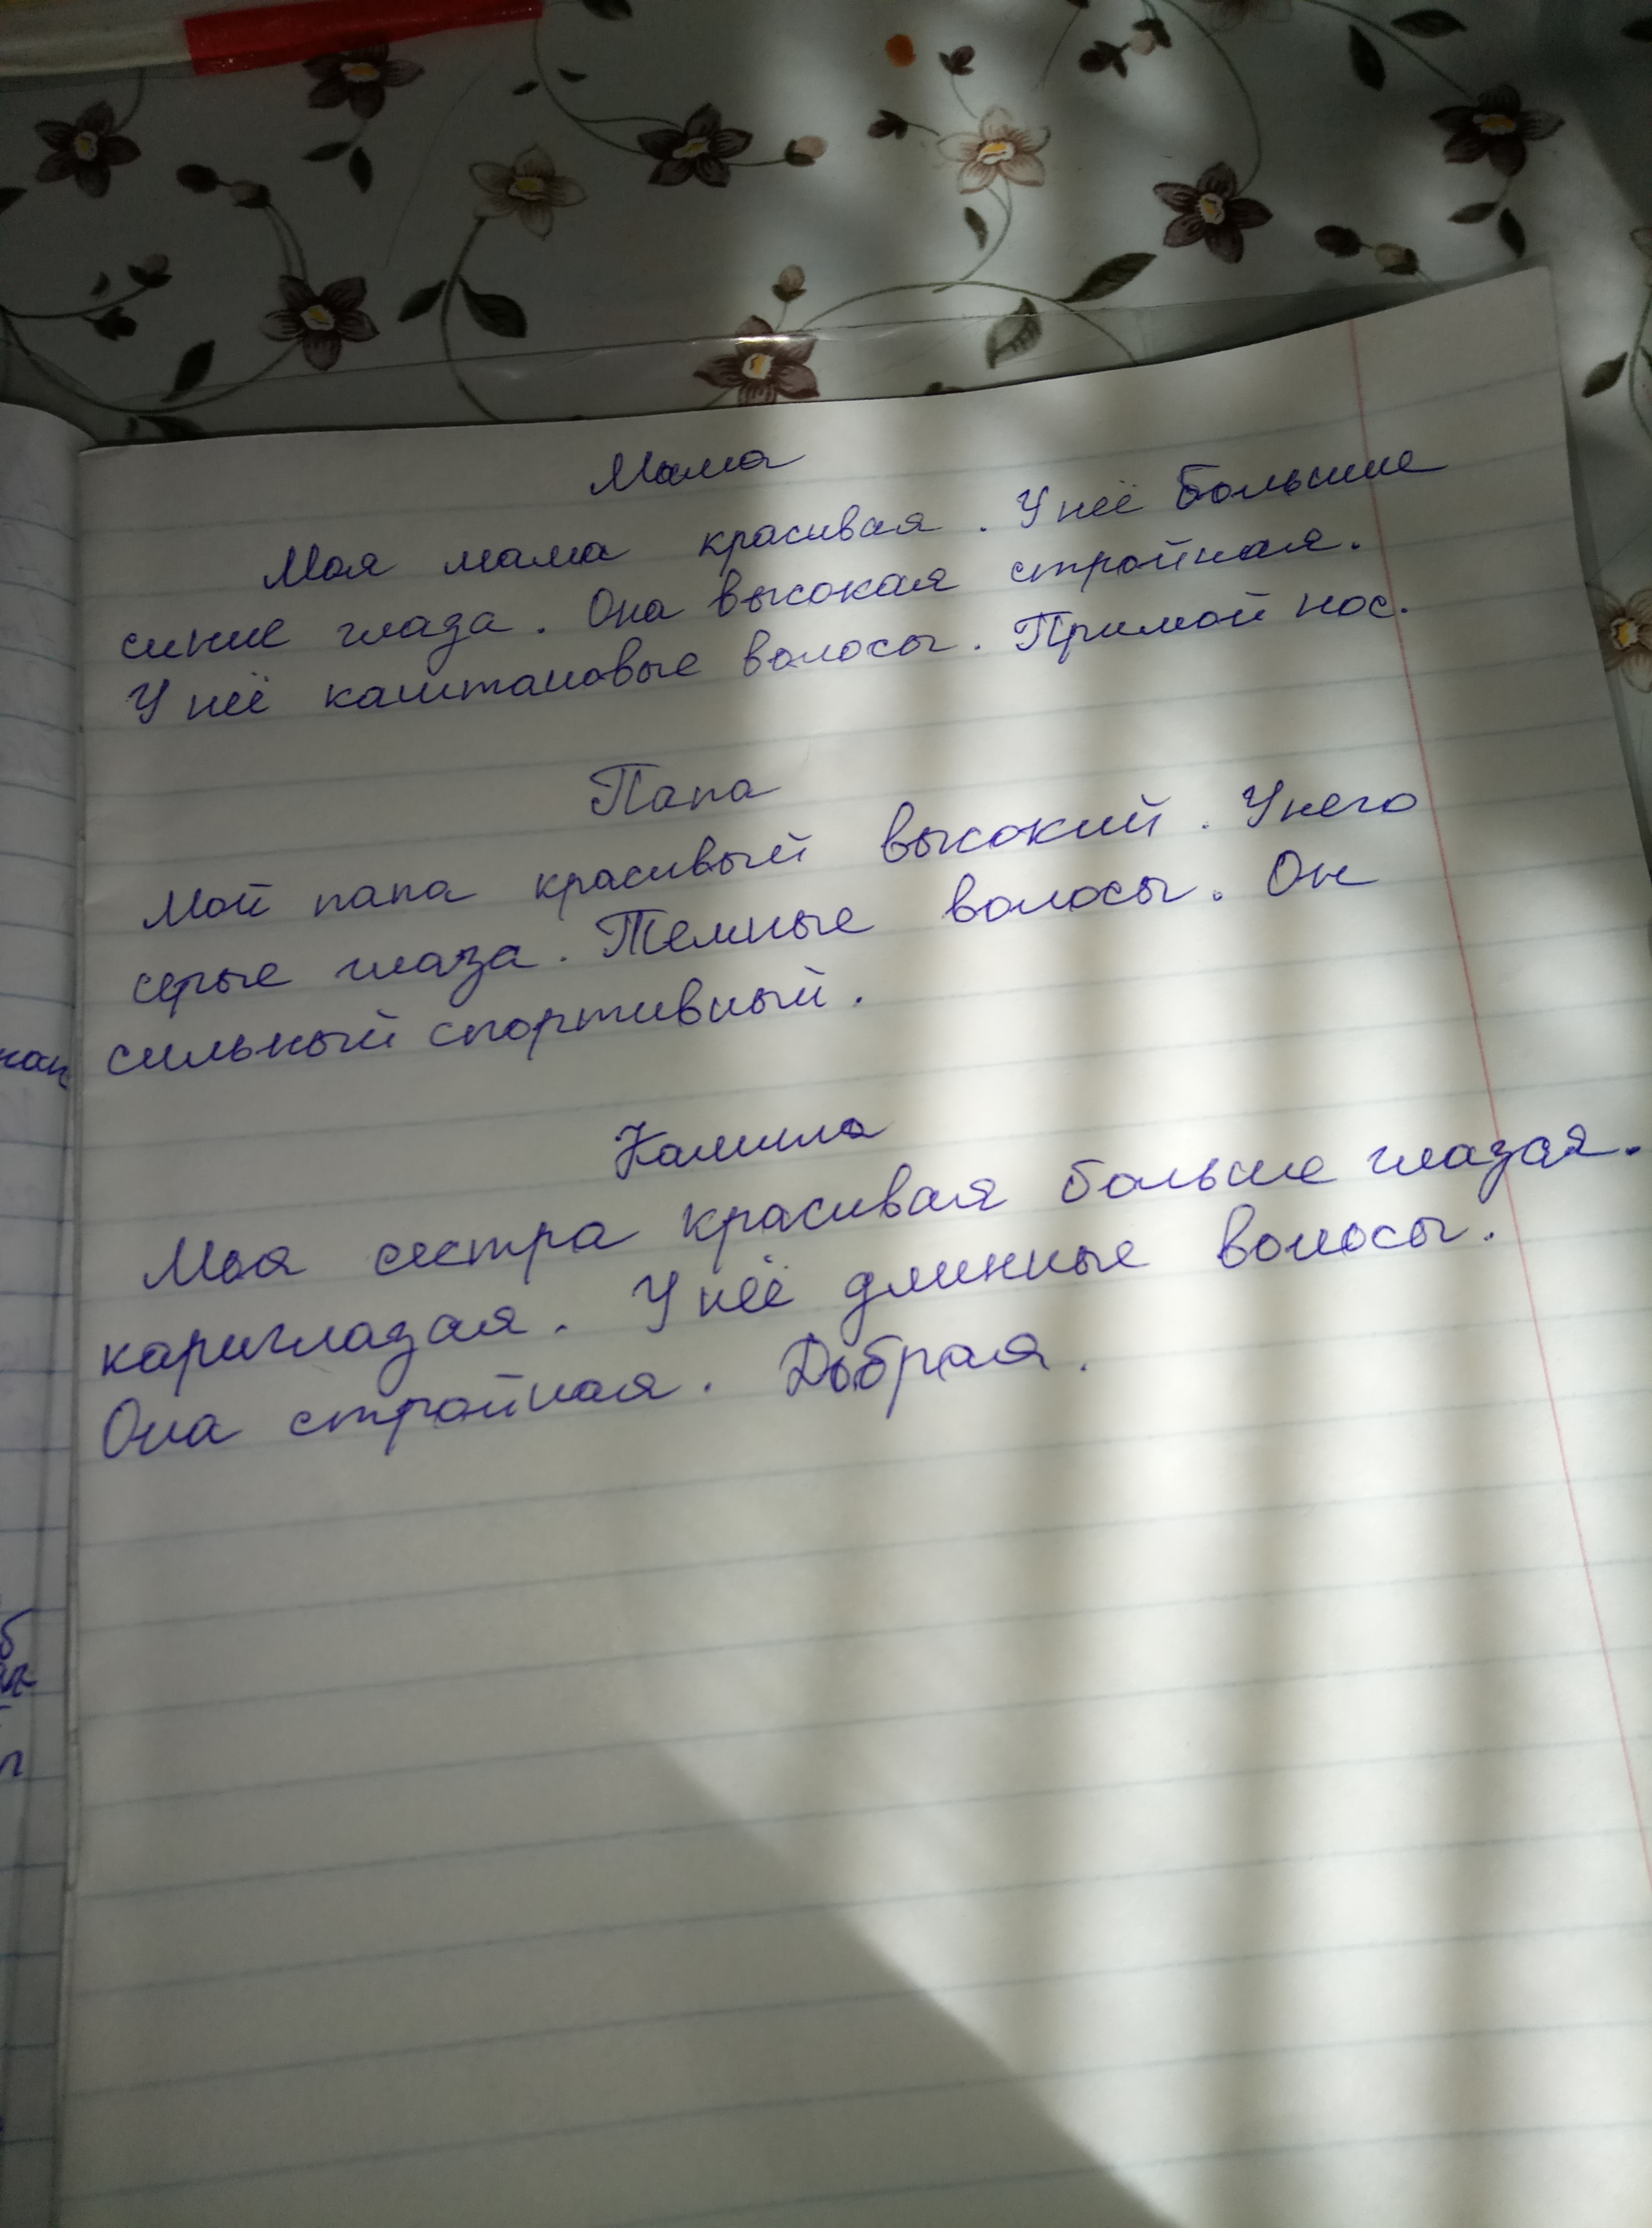 Мама
Моя мама красивая. У неё большие
синие глаза. Она высокая стройная.
У неё каштановые волосы. Примой нос.
Папа
Мой папа красивый высокий. У него
серые глаза. Темные волосы. Он
сильный спортивный.
Камила
Моя сестра красивая больше глазая.
кариглазая. У неё длинные волосы.
Она стройная. Добрая.